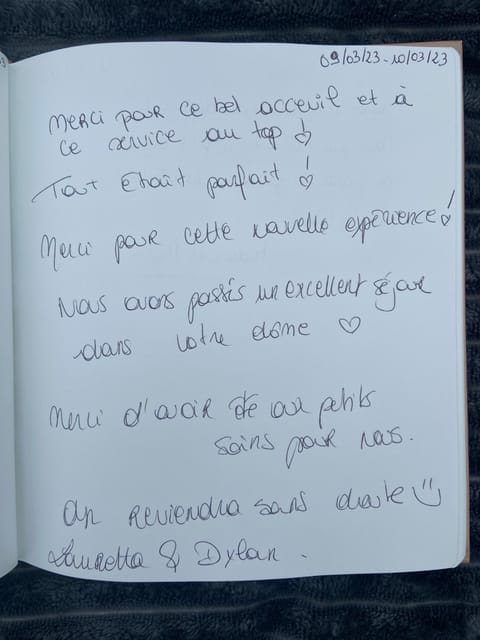 09/03/23-10/03/23
Merci pour ce bel acceuil et à
ce service au top !
Tout était parfait !
Merci pour cette nouvelle expérience !
Nous avons passés un excellent séjour
dans votre dôme ♡
Merci d'avoir été aux petits
soins pour nous.
On reviendra sans doute :)
Lauretta & Dylan.